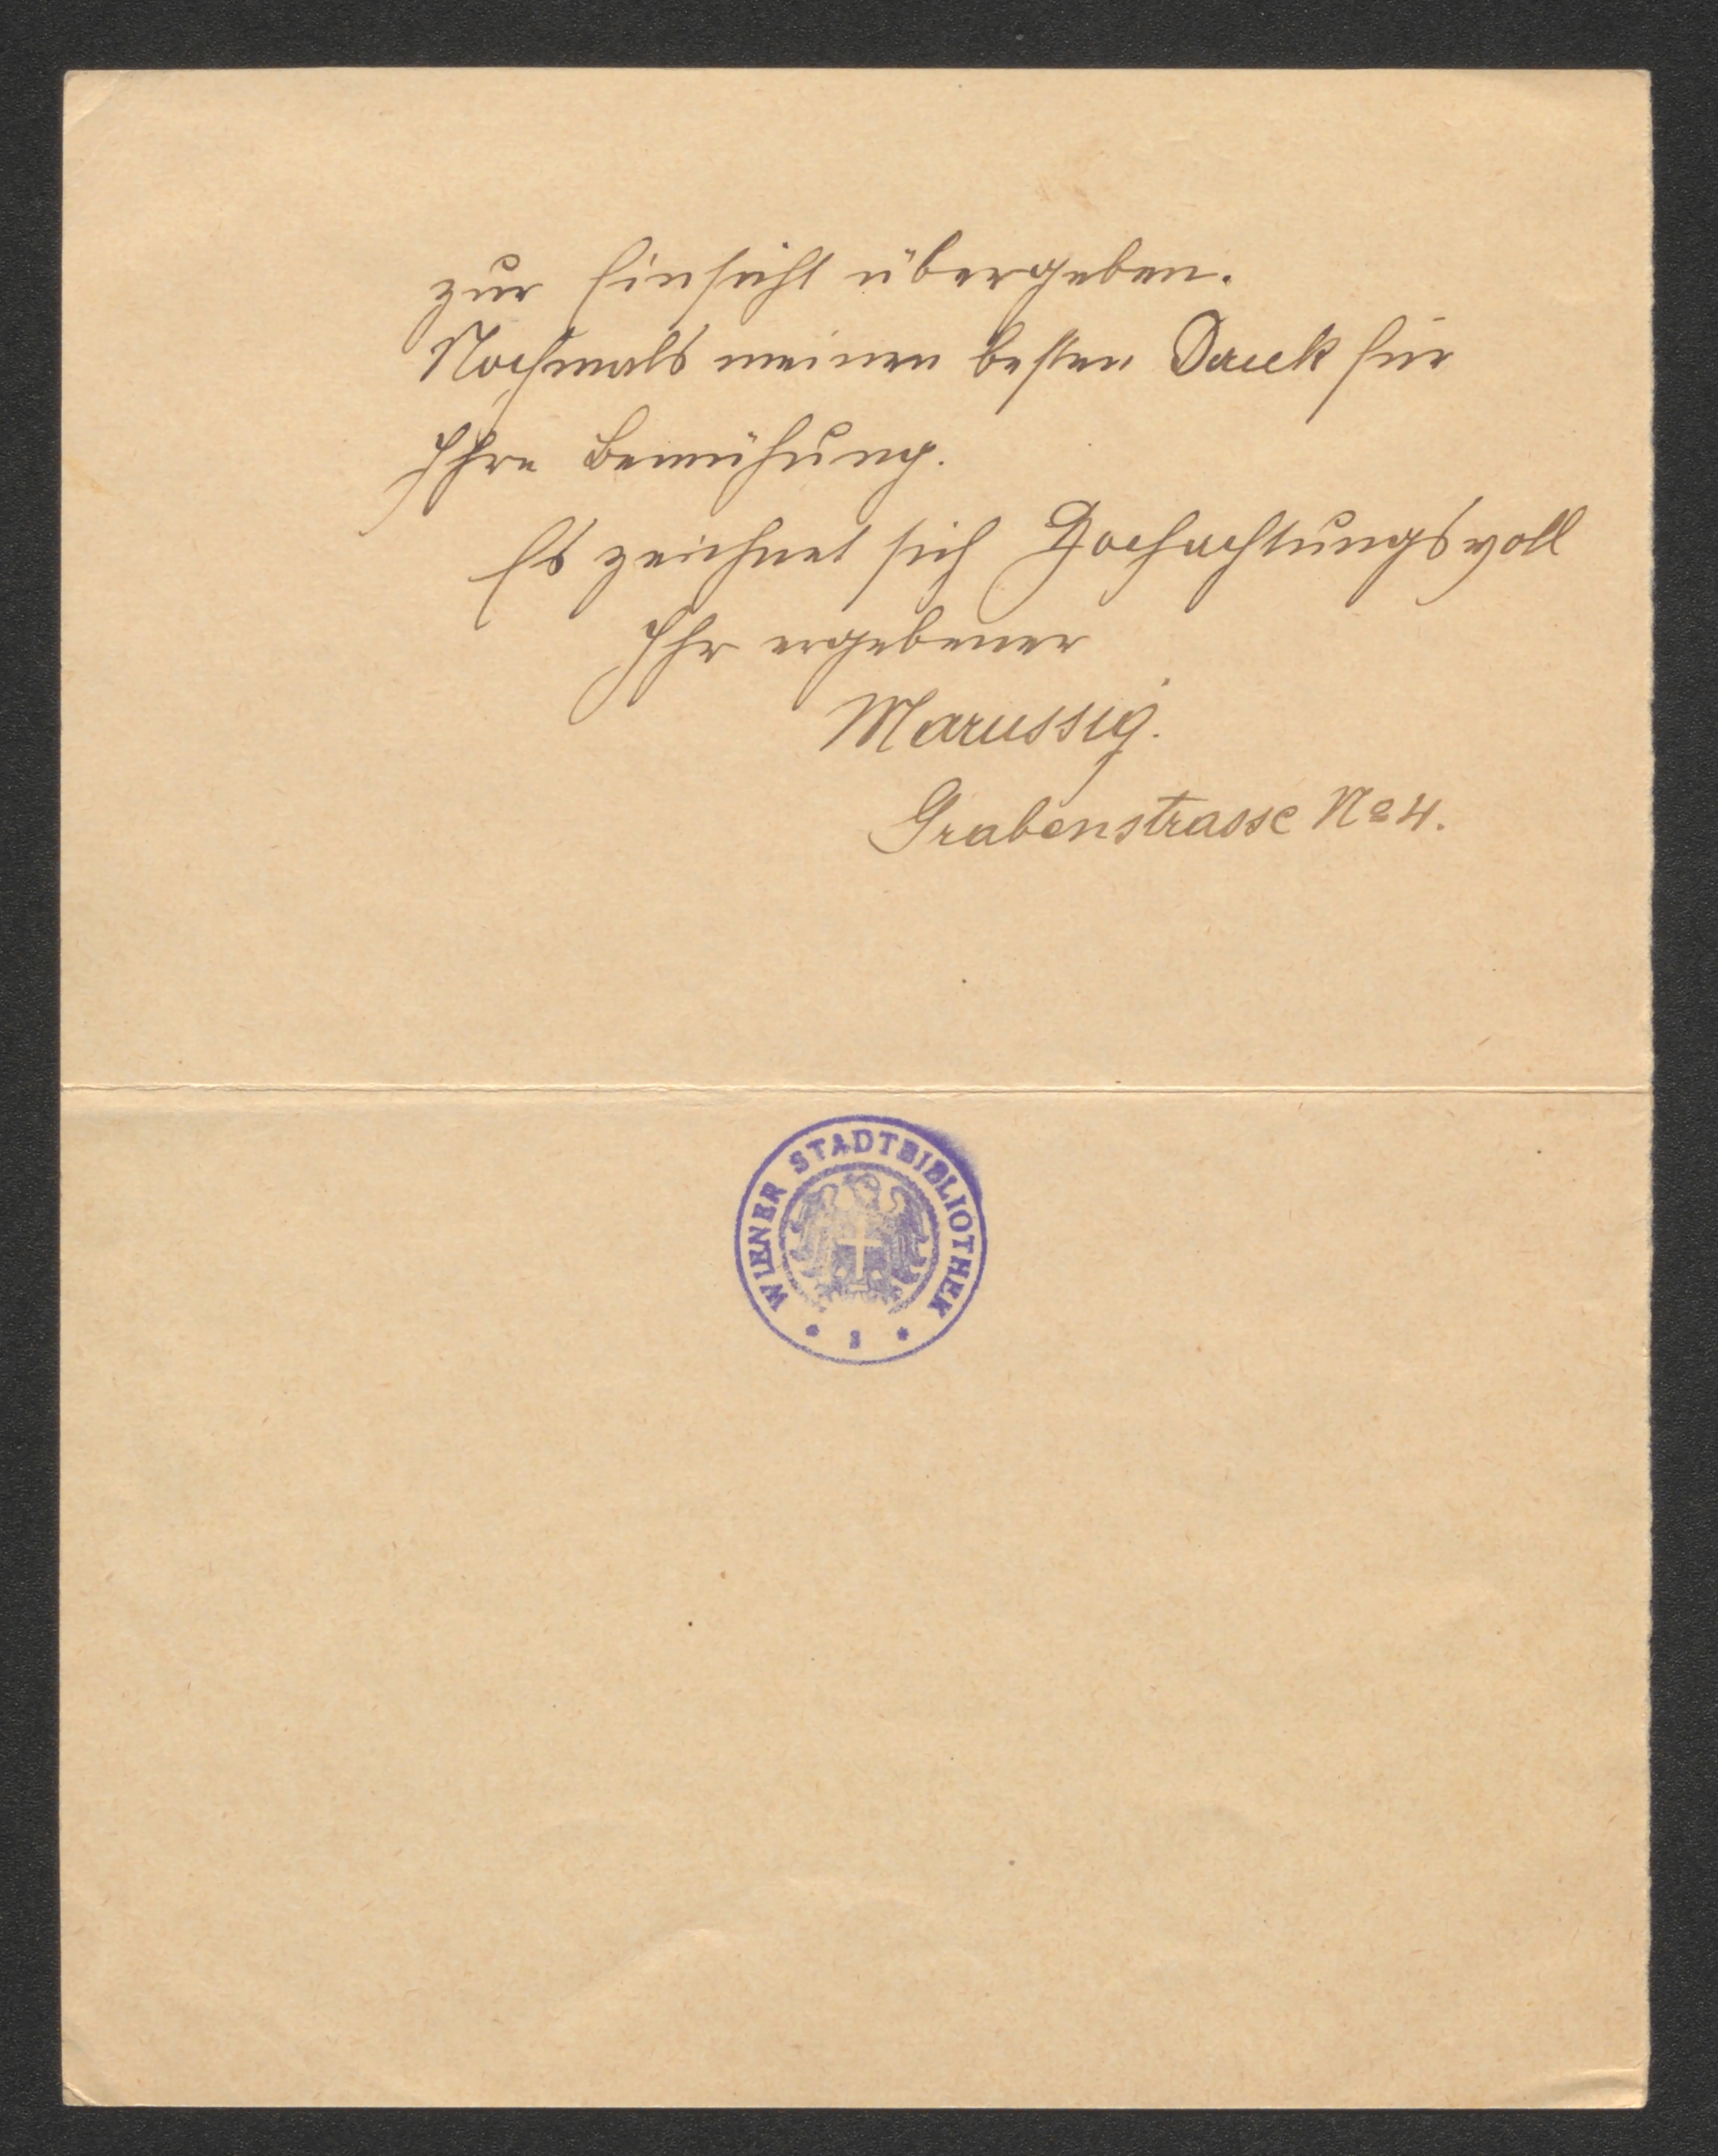 zur Einsicht übergeben.
Nochmals meinen besten Dank für
Ihre Bemühung.
Es zeichnet sich Hochachtungsvoll
Ihr ergebener
Marussig.
Grabenstrasse No 4.
WIENER STADTBIBLIOTHEK